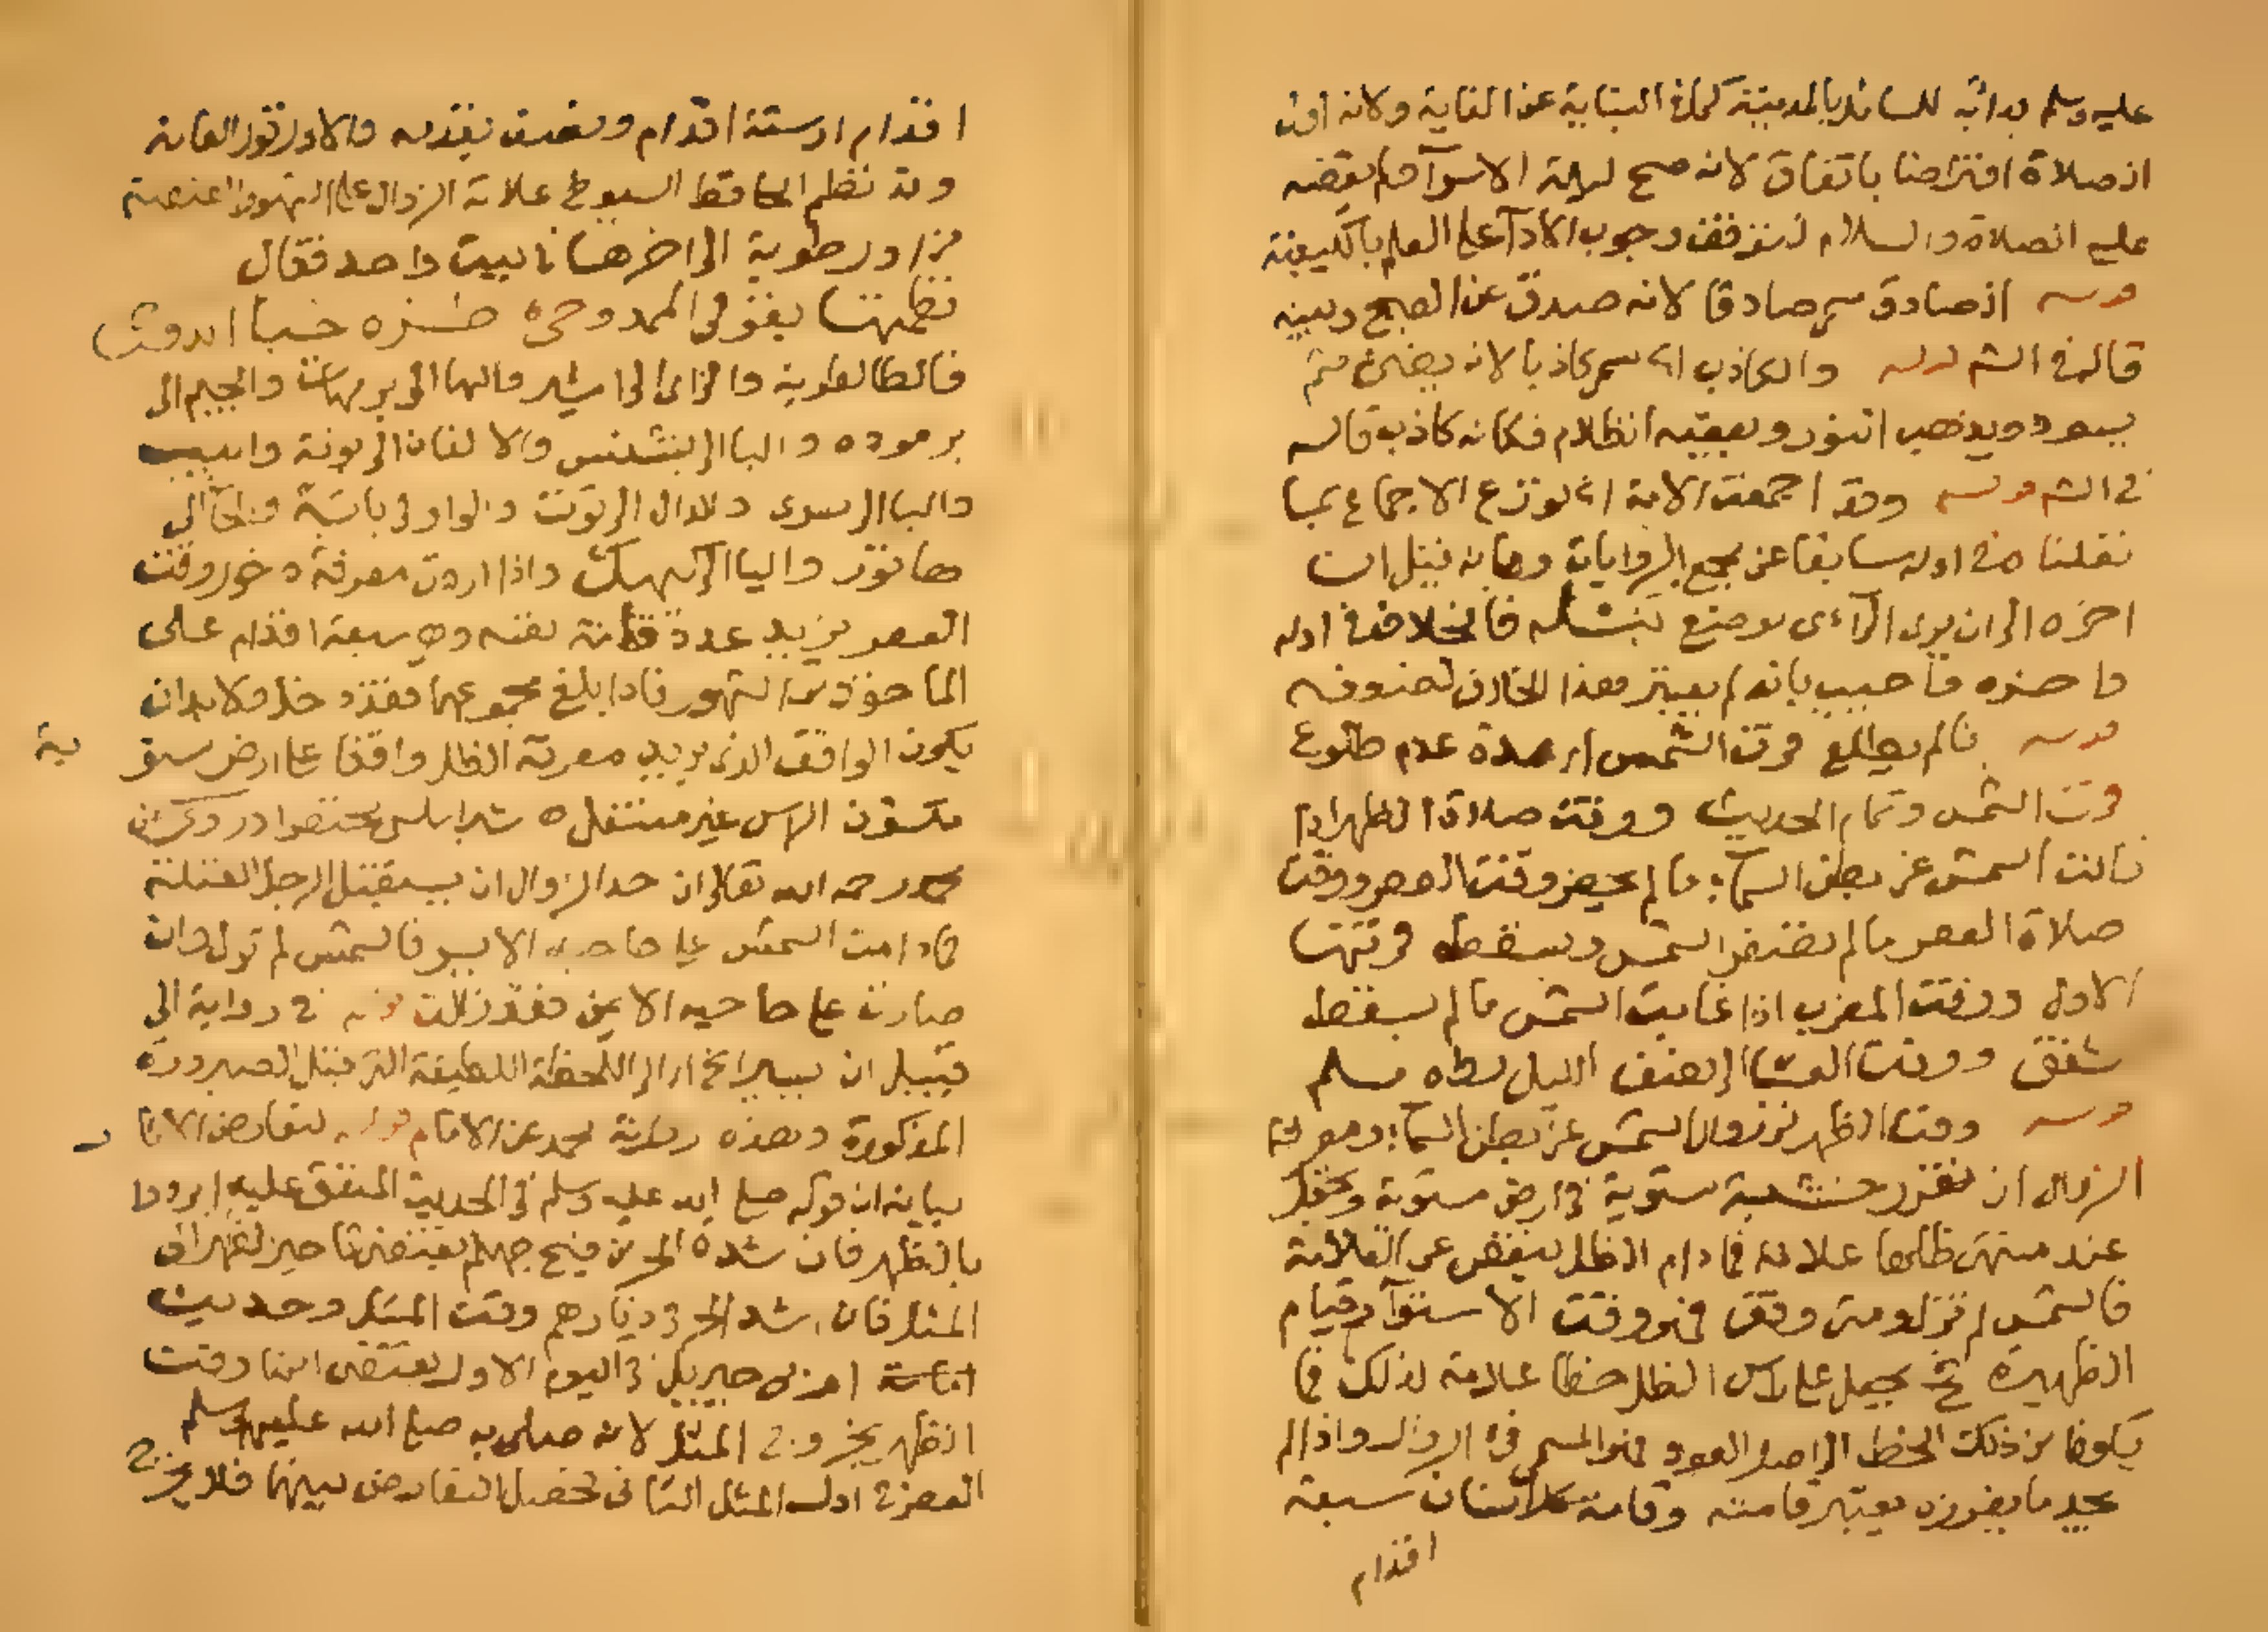 عليه وسلم بدأ به للسائل بالمدينة كما في البناية عن الغاية ولانه اول
از صلاة افتراضنا باتفاق لانه صبح ليلة الاسرآ ولم يقضه
عليه الصلاة والسلام لتوقف وجوب الادآ على العلم بالكيفية
قوله الصادق سمى صادقا لانه صدق عن الصبح وبينه
قاله في الشر قوله والكاذب انه سمى كاذبا لانه يضئ ثم
يسود ويذهب النور ويعقبه الظلام فكانه كاذب قاله
في الشر قوله وقد اجمعت الامة انه نوزع الاجماع بما
نقلنا في اوله سابقا عن مجمع الروايات وبما به قيل ان
اخره الى ان يرى الرآءى موضع نبشله فالخلاف في اوله
واخره فاجيب بانه لم يعتبر هذا الخلاف لضعفه
قوله ما لم يطلع قرن الشمس اى مدة عدم طلوع
قرن الشمس وتمام الحديث ووقت صلاة الظهر اذا
زالت الشمس عن بطن السمآء ما لم يحضر وقت العصر ووقت
صلاة العصر ما لم تصفر الشمس ويسقط قرنها
الاول ووقت المغرب اذا غابت الشمس ما لم يسقط
شفق ووقت العشا الى نصف الليل رواه مسلم
قوله وقت الظهر لزوال الشمس عن بطن السمآء ومعرفة
الزوال ان تغرز خشبة مستوية في ارض مستوية ويجعل
عند منتهى ظلها علامة فما دام الظل ينقص عن العلامة
فالشمس لم تزل ومتى وقف فهو وقت الاستوآء وقيام
الظهيرة ثم يجعل على راس الظل خطا علامة لذلك فما
يكون من ذلك الخط الى اصل العود فهو المسمى فئ الزوال واذا لم
يجد ما يغرزه يعتبر قامته وقامة كل انسان سبعة
اقدام
اقدام او ستة اقدام ونصف بقدمه والاول قول العامة
وقد نظم الحافظ السيوطي علامة الزوال على الشهور القبطية
من اول طوبة الى اخرها في بيت واحد فقال
نظمتها بقولى الممدوحى طزه جبا ابدوحى
فالطا لطوبة والزاى الى امشير والها الى برمهات والجيم الى
برموده والبا الى بشنس والا لفان الى بونة وابيب
والبا الى مسرى والدال الى توت والواو الى بابة والحا الى
هاتور واليا الى كيهك واذا اردت معرفة دخول وقت
العصر يزيد عدة قامة نفسه وهي سبعة اقدام على
الماخوذ من الشهور فاذا بلغ مجموعهما فقد دخل ولا بد ان
يكون الواقف الذى يريد معرفة الظل واقفا على ارض مستو ية
مكشوف الراس غير منتعل ه شرابلسى مختصرا در وعن
محمد رحمه الله تعالى ان حد الزوال ان يستقبل الرجل القبلة
فما دامت الشمس على حاجبه الايسر فالشمس لم تزل وان
صارت على حاجبه الايمن فقد زالت قوله في رواية الى
قبيل ان يصير الخ اى الى اللحظة اللطيفة التي قبل الصيرورة
المذكورة وهذه رواية محمد عن الامام قوله لتعارض الاثار
بيانه ان قوله صلى الله عليه وسلم في الحديث المتفق عليه ابردوا
بالظهر فان شدة الحر من فيح جهنم يقتضى تاخير الظهر الى
المثل فان اشد الحر في ديارهم وقت المثل وحديث
امامة جبريل في اليوم الاول يقتضى انتها وقت
الظهر بخروج المثل لانه صلى به صلى الله عليه وسلم
العصر في اول المثل الثانى فحصل التعارض بينهما فلا يخرج